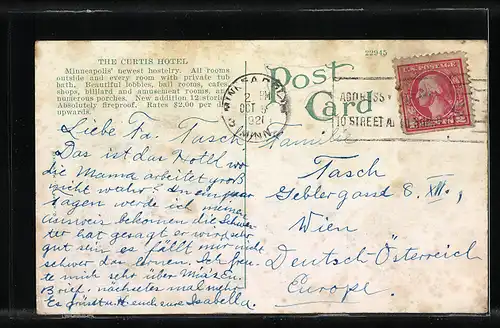 THE CURTIS HOTEL
Minneapolis' newest hostelry. All rooms
outside and every room with private tub
bath. Beautiful lobbies, ball rooms, cafes,
shops, billiard and amusement rooms, and
numerous porches. New addition 12-stories.
Absolutely fireproof. Rates $2.00 per day
upwards.
22945
Post
Card
MINNEAPOLIS
OCT
1921
MINN.
ADDRESS
TO STREET
U.S. POSTAGE
Liebe Fa. Tasch
Das ist das Hotel wo
die Mama arbeitet groß
nicht wahr? In ein paar
tagen werde ich meinen
ausweis bekommen die Schwe-
ster hat gesagt er wird sehr
gut sein, es fällt mir nicht
schwer da lernen. Ich freu-
te mich sehr über
Brief. nächstes mal mehr
Es grüsst u. K. euch eure Isabella.
Familie
Tasch
Geblergasse 8. XVII.,
Wien
Deutsch-Österreich
Europe.